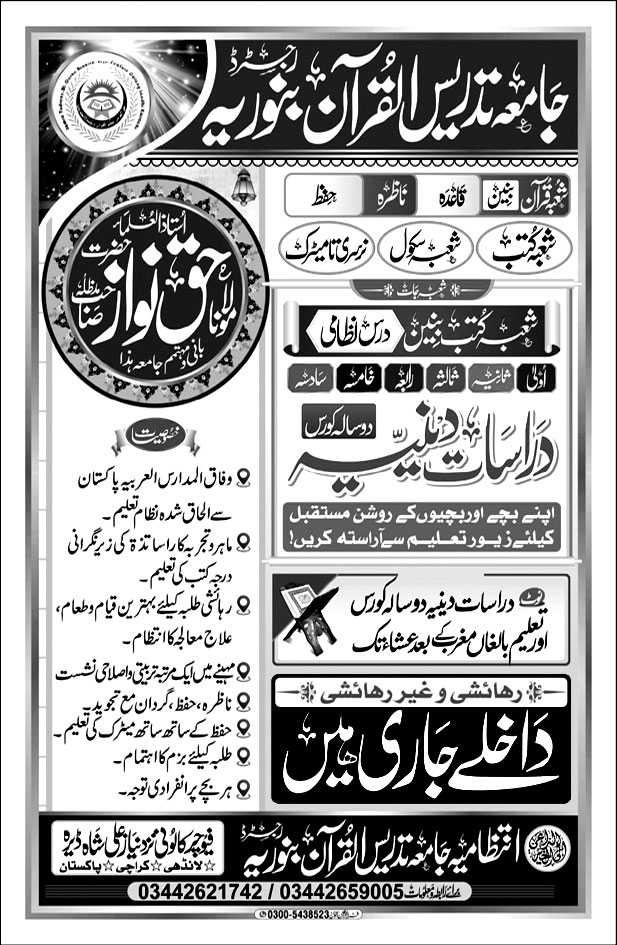 جامعہ تدریس القرآن بنوریہ رجسٹرڈ
شعبہ قرآن بنین قاعدہ ناظرہ حفظ
شعبہ کتب شعبہ سکول نرسری تا میٹرک
استاذ العلماء
حضرت
مولانا حق نواز صاحب مدظلہ
بانی و مہتمم جامعہ ہذا
شعبہ جات
شعبہ کتب بنین درس نظامی
اولیٰ ثانیہ ثالثہ رابعہ خامسہ سادسہ
دراسات دینیہ دو سالہ کورس
اپنے بچے اور بچیوں کے روشن مستقبل
کیلئے زیور تعلیم سے آراستہ کریں!
نوٹ دراسات دینیہ دو سالہ کورس
اور تعلیم بالغاں مغرب کے بعد عشاء تک
رھائشی و غیر رھائشی
داخلے جاری ہیں
خصوصیات
وفاق المدارس العربیہ پاکستان
سے الحاق شدہ نظام تعلیم۔
ماہر و تجربہ کار اساتذۃ کی زیر نگرانی
درجہ کتب کی تعلیم۔
رہائشی طلبہ کیلئے بہترین قیام و طعام،
علاج معالجہ کا انتظام۔
مہینے میں ایک مرتبہ تربیتی و اصلاحی نشست
ناظرہ، حفظ، گردان مع تجوید۔
حفظ کے ساتھ ساتھ میٹرک کی تعلیم۔
طلبہ کیلئے بزم کا اہتمام۔
ہر بچے پر انفرادی توجہ۔
انتظامیہ جامعہ تدریس القرآن بنوریہ رجسٹرڈ
فیوچر کالونی نزد نیاز علی شاہ ڈیرہ
لانڈھی ☆ کراچی ☆ پاکستان
برائے رابطہ و معلومات 03442621742 / 03442659005
0300-5438523